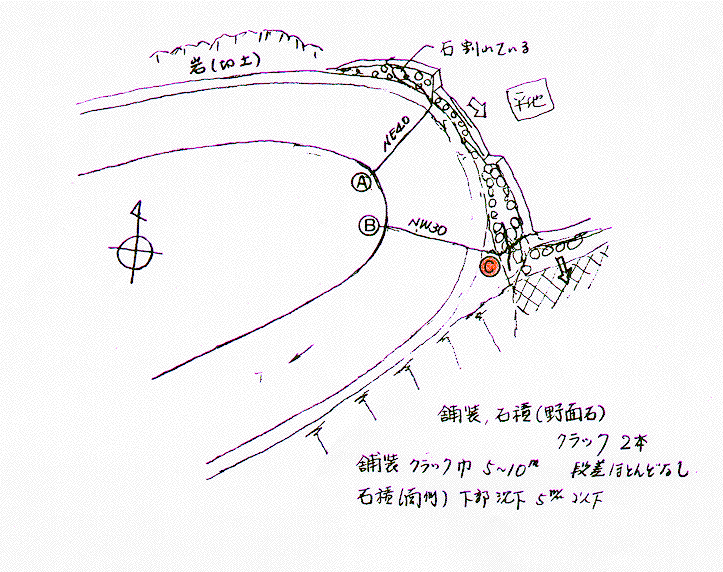 石割れている
岩(切土)
平地
NE40
A
B
NW30
C
舗装,石積(野面石)
クラック 2本
舗装クラック巾 5~10m/m 段差ほとんどなし
石積(南側)下部沈下 5m/m以下